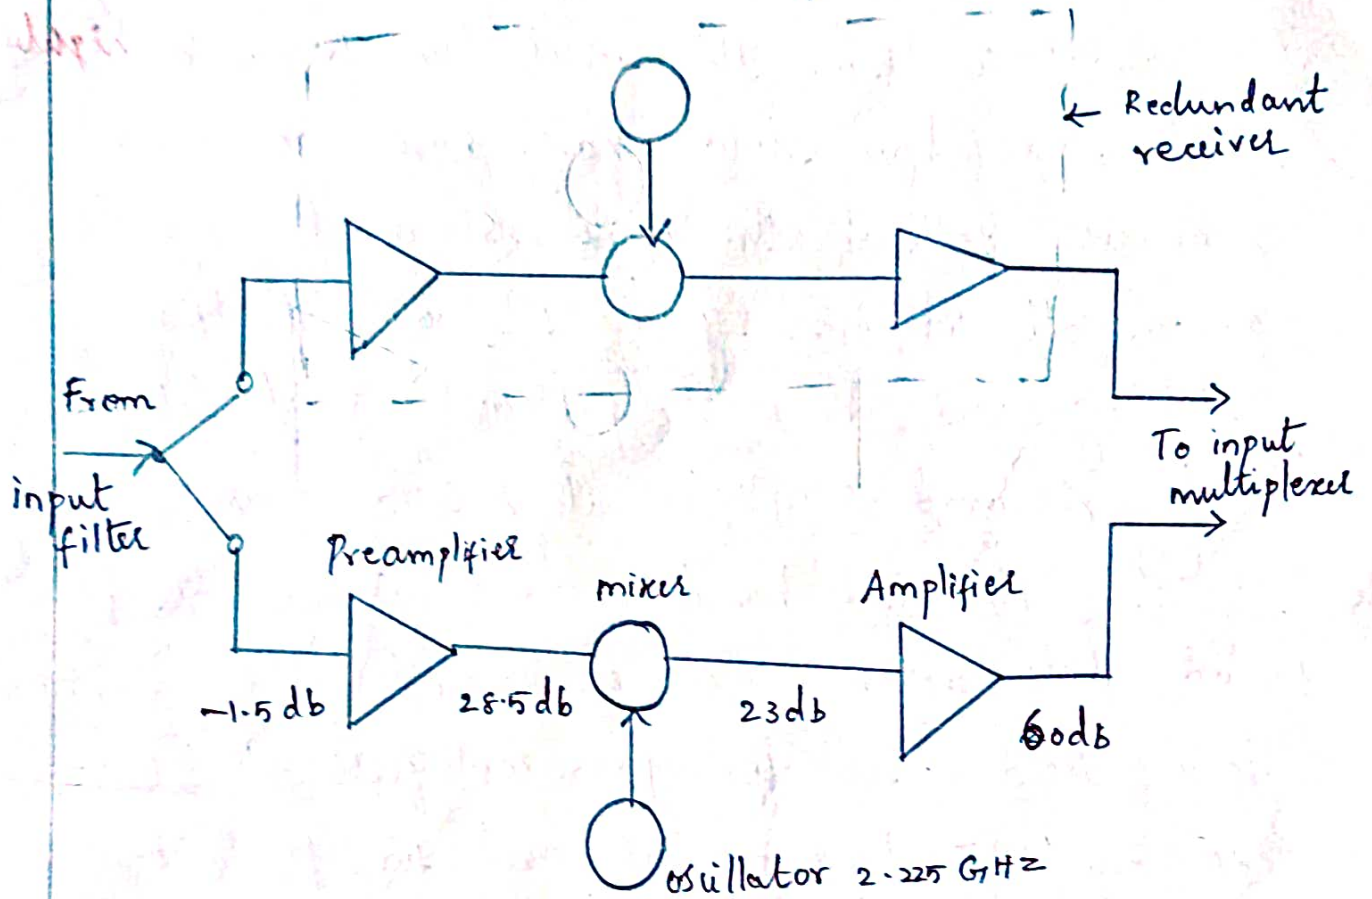 ← Redundant
receiver
From
input
filter
To input
multiplexer
Preamplifier
mixer
Amplifier
-1.5 db
28.5 db
23 db
60 db
oscillator 2.225 GHZ